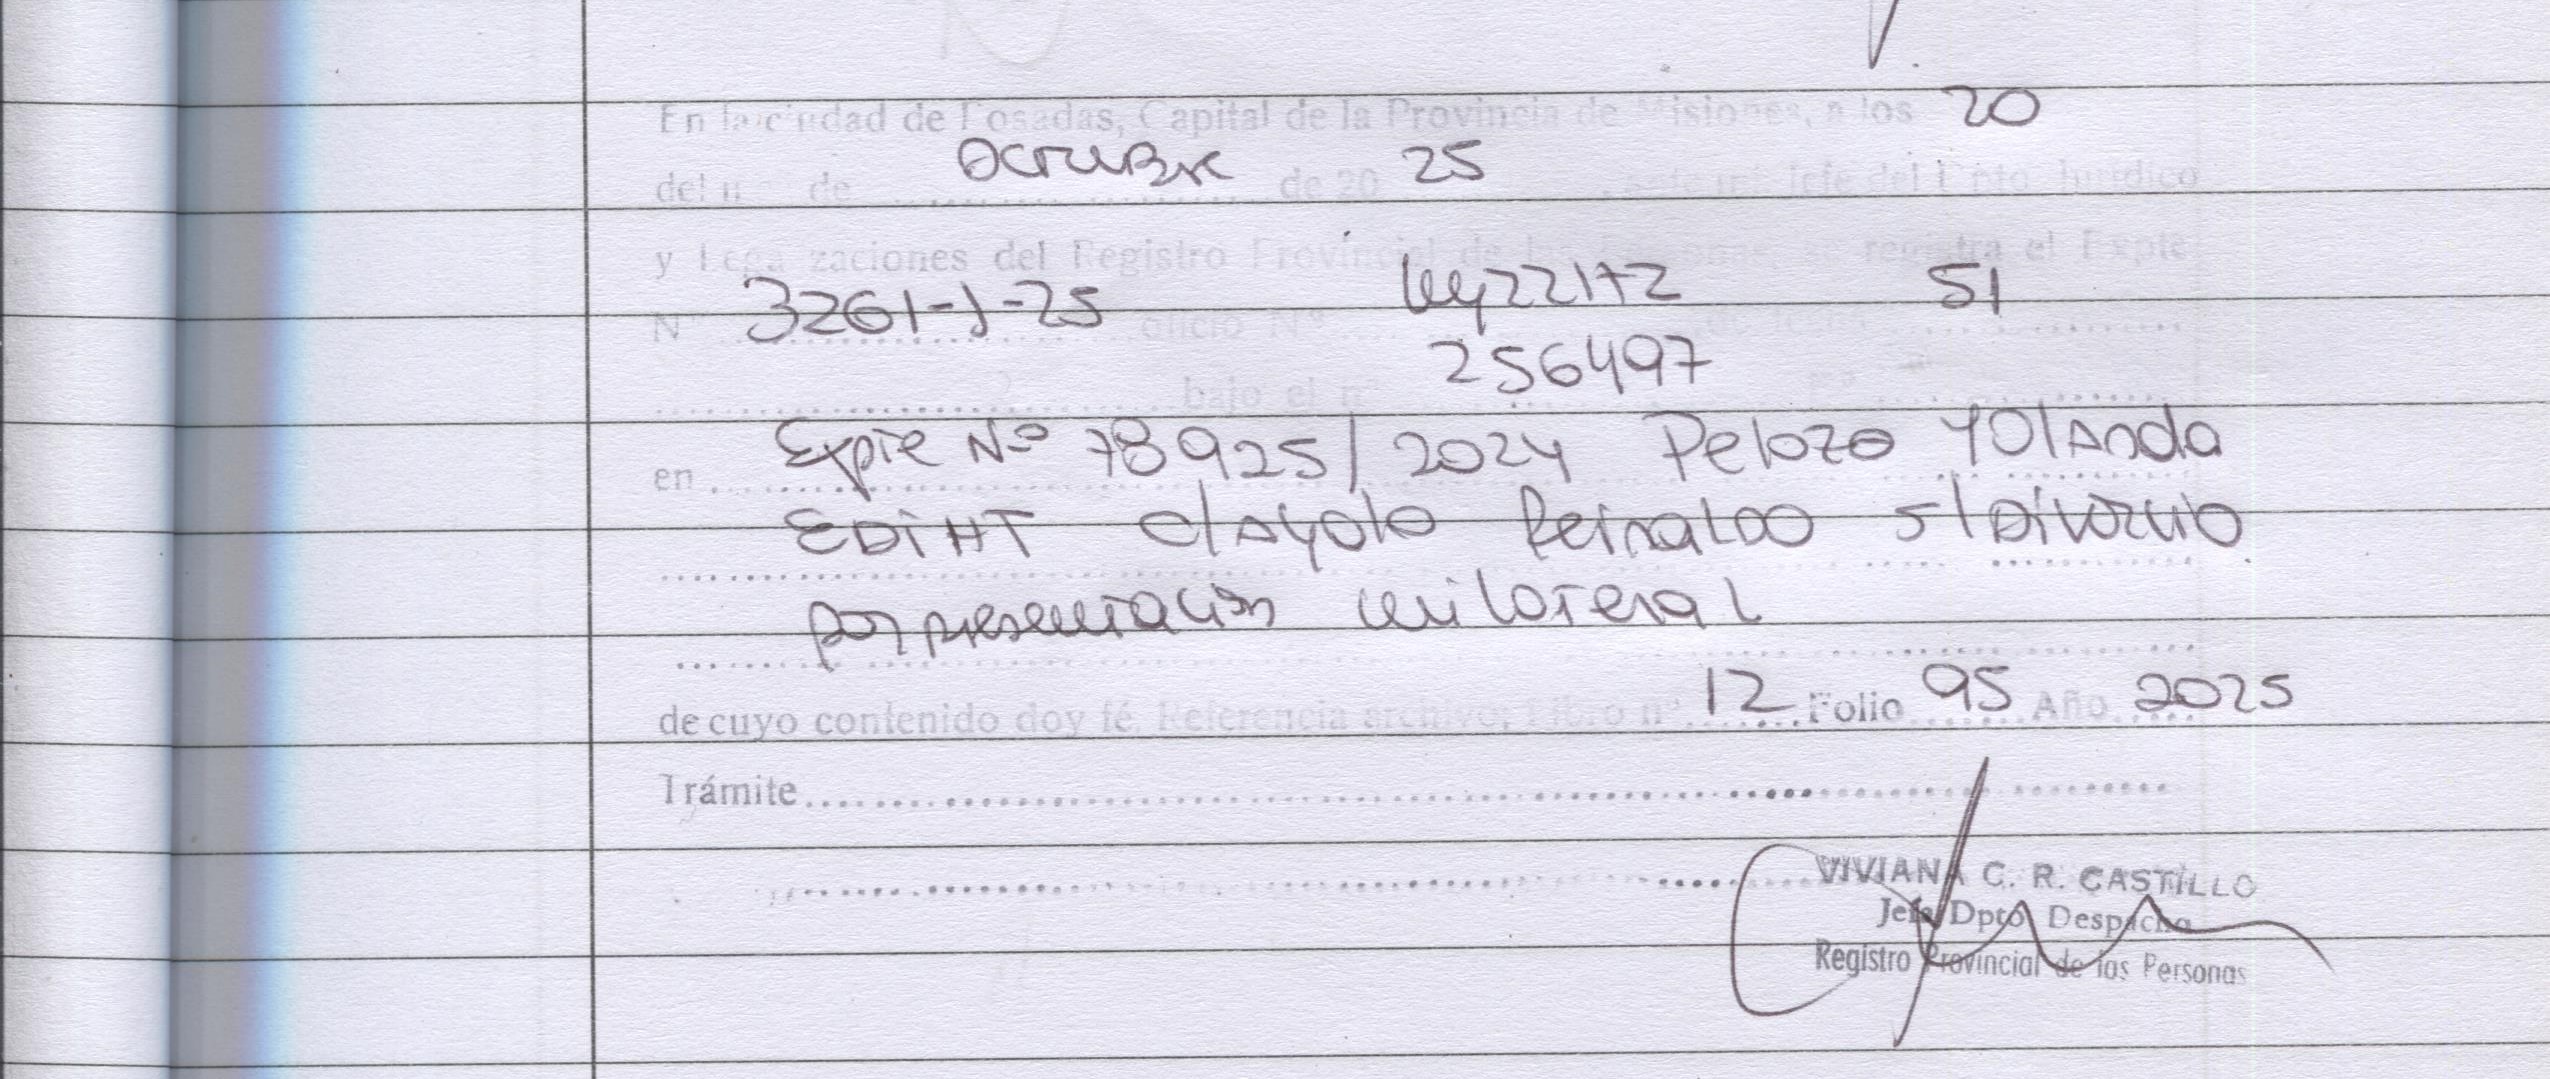 En la ciudad de Posadas, Capital de la Provincia de Misiones, a los 20
del m de Octubre de 20 25 ante mi Jefe del Dpto. Jurídico
y Legalizaciones del Registro Provincial de las Personas, se registra el Expte
Nº 3261-J-25 oficio Nº Ley 22172 de fecha 51
bajo el nº 256497
en Expte Nº 78925/2024 Pelozo YOlAnda
EDiHT c/ Ayala Reinaldo s/ Divorcio
por presentación unilateral
de cuyo contenido doy fé. Referencia archivo; Libro nº 12 Folio 95 Año 2025
Trámite
VIVIANA C. R. CASTILLO
Jefa Dpto Despacho
Registro Provincial de las Personas